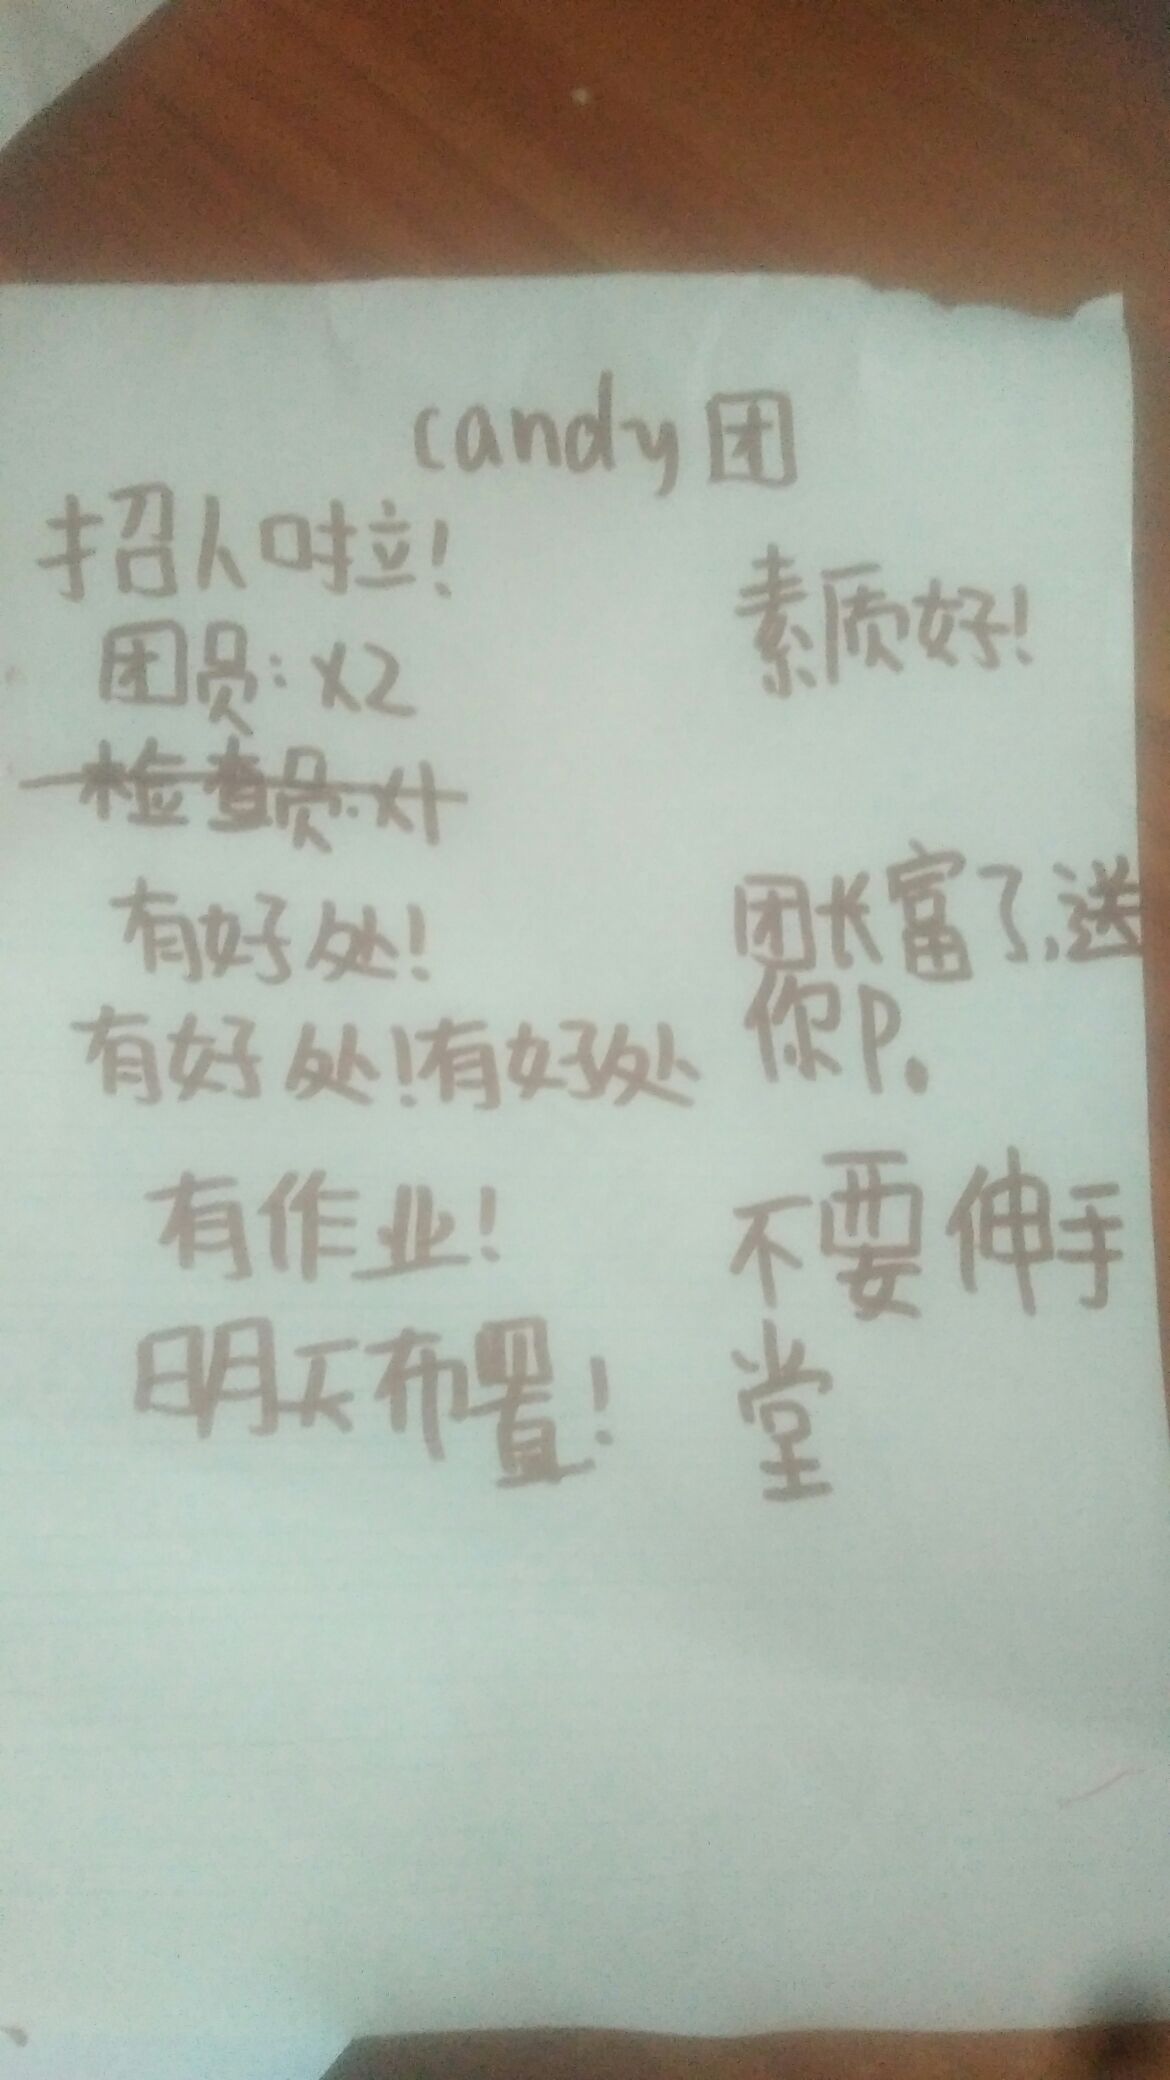 candy团
招人啦!
团员:x2
检查员:x1
有好处!
有好处!有好处
有作业!
明天布置!
素质好!
团长富了,送
你P.
不要伸手
堂